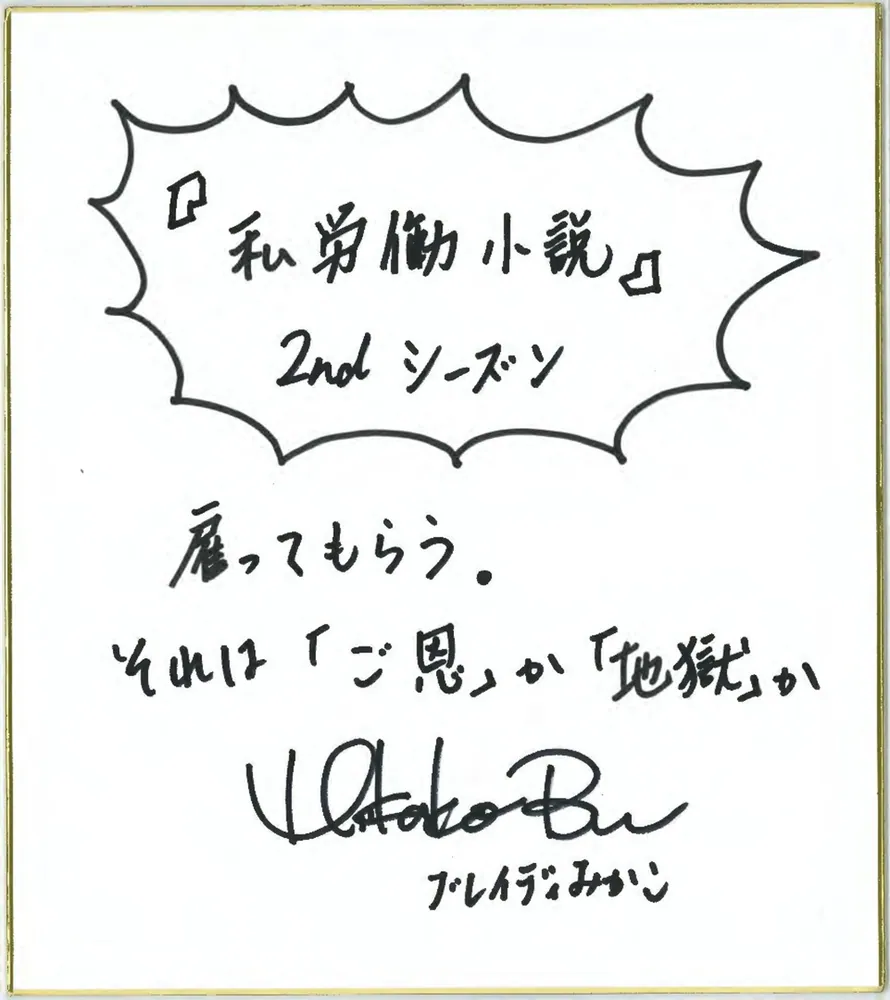 『私労働小説』
2nd シーズン
雇ってもらう.
それは「ご恩」か「地獄」か
ブレイディみかこ